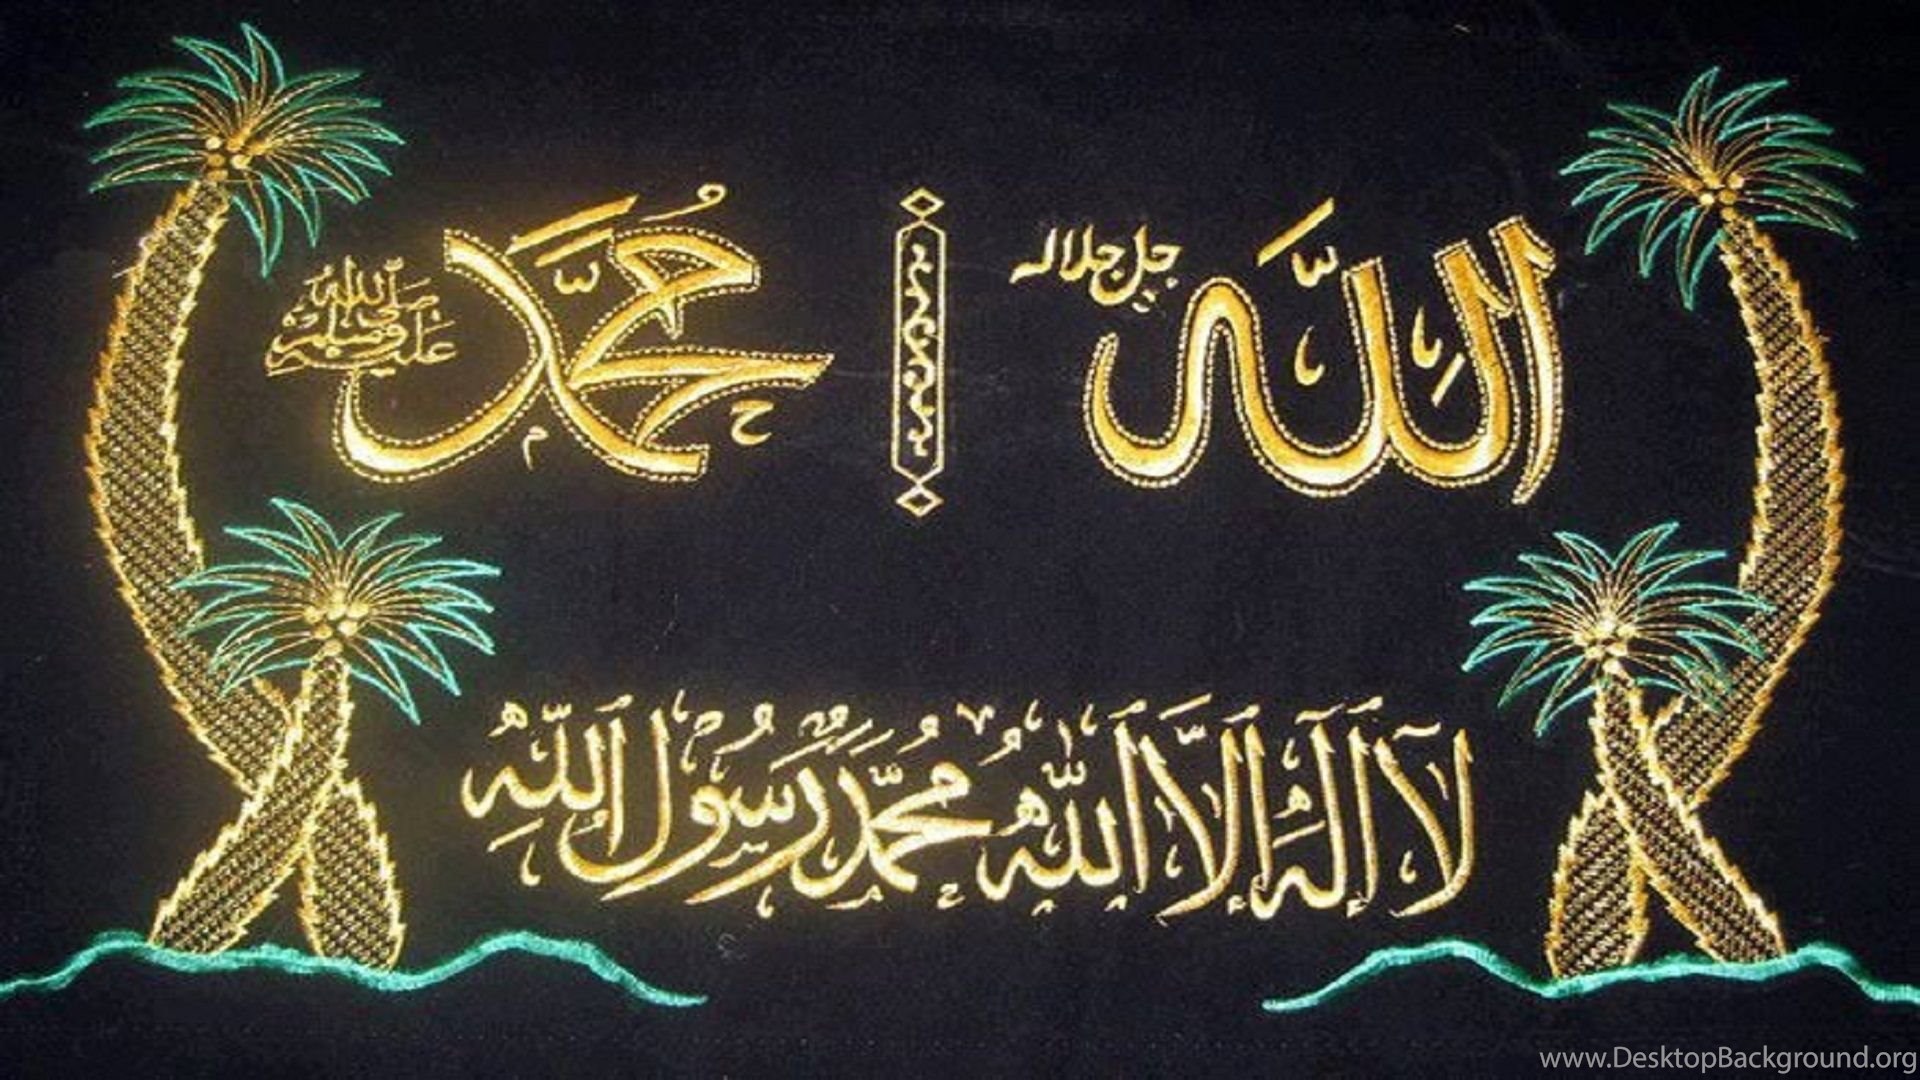 اللَّه جل جلاله
مُحَمَّد صلى الله عليه وسلم
لَا إِلٰهَ إِلَّا اللّٰهُ مُحَمَّدٌ رَسُوْلُ اللّٰهِ
www.DesktopBackground.org